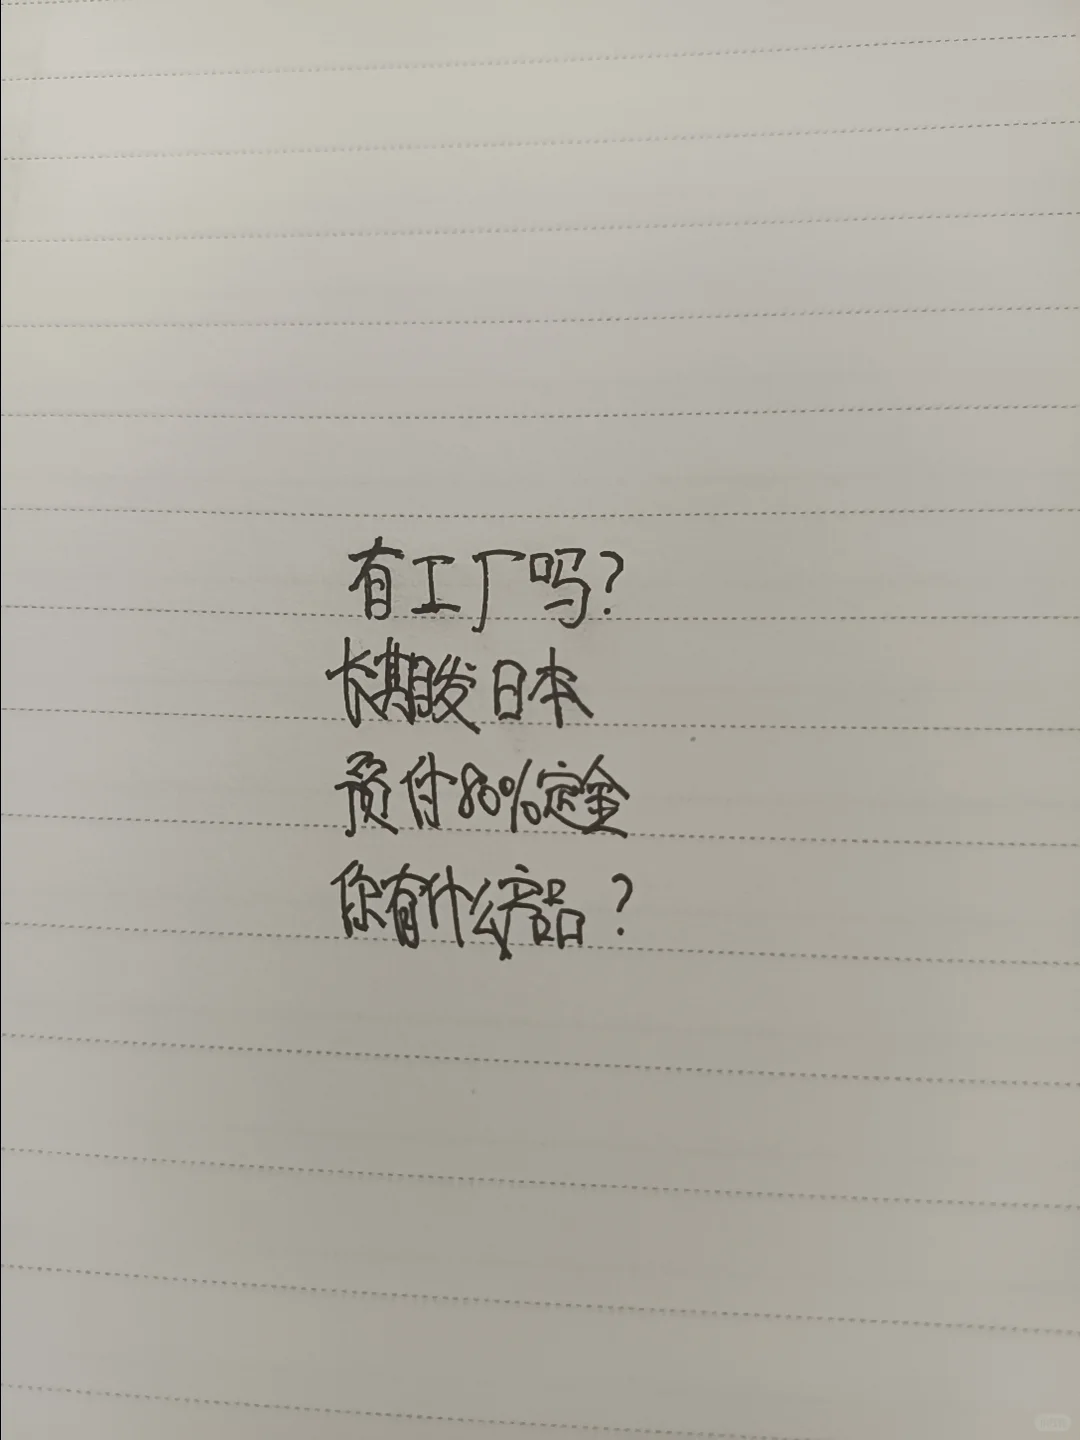 有工厂吗?
长期发日本
预付80%定金
你有什么产品?